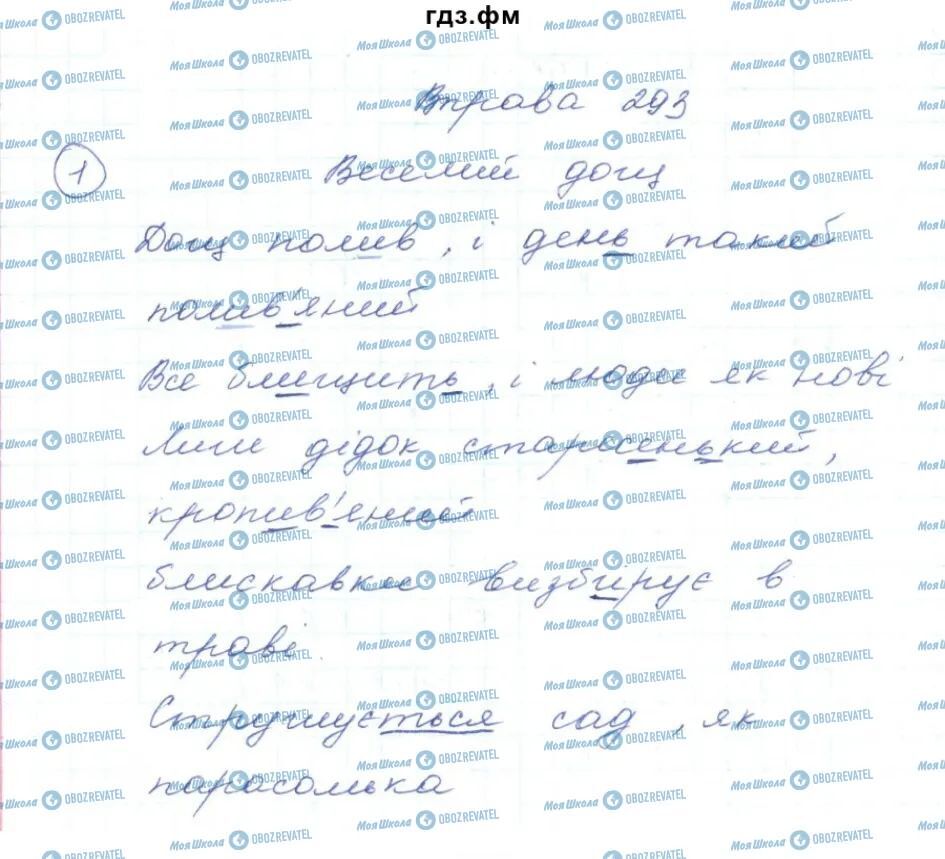 гдз.фм
Вправа 293
1 Веселий дощ
Дощ полив, і день такий
полив'яний
Все блищить, і люди як нові
Лиш дідок старенький,
кропив'яний
блискавки визбирує в
траві.
Струмується сад, як
парасолька